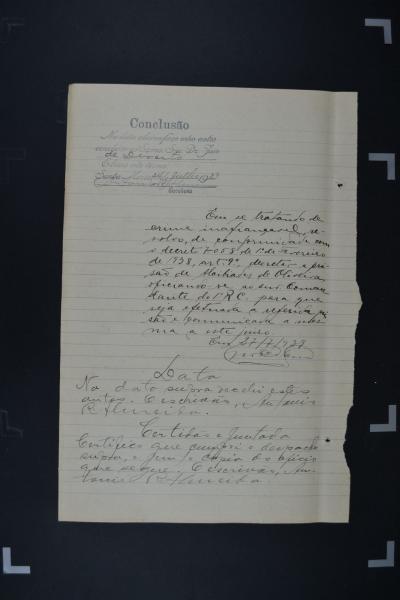 Conclusão
Nesta data faço estes autos
conclusos Exmo. Snr. Dr. Juiz
de Direito
Escrivão
Em se tratando de
crime inafiançavel, re-
solvo, de conformidade com
o decreto de 1º de
de 938, art. 9º, decretar a pri-
são de Machado de Oliveira
oficiando-se ao snr. Coman
dante do RC. para que
seja efetuada a referida pri-
são e comunicada a mes-
ma a este juizo.
Em 27/7/938
Data
Na data supra recebi estes
autos. O escrivão, Antonio
R Almeida.
Certidão e Juntada
Certifico que cumpri o despacho
supra, e junto copia do oficio
que segue. O escrivão, An-
tonio R Almeida